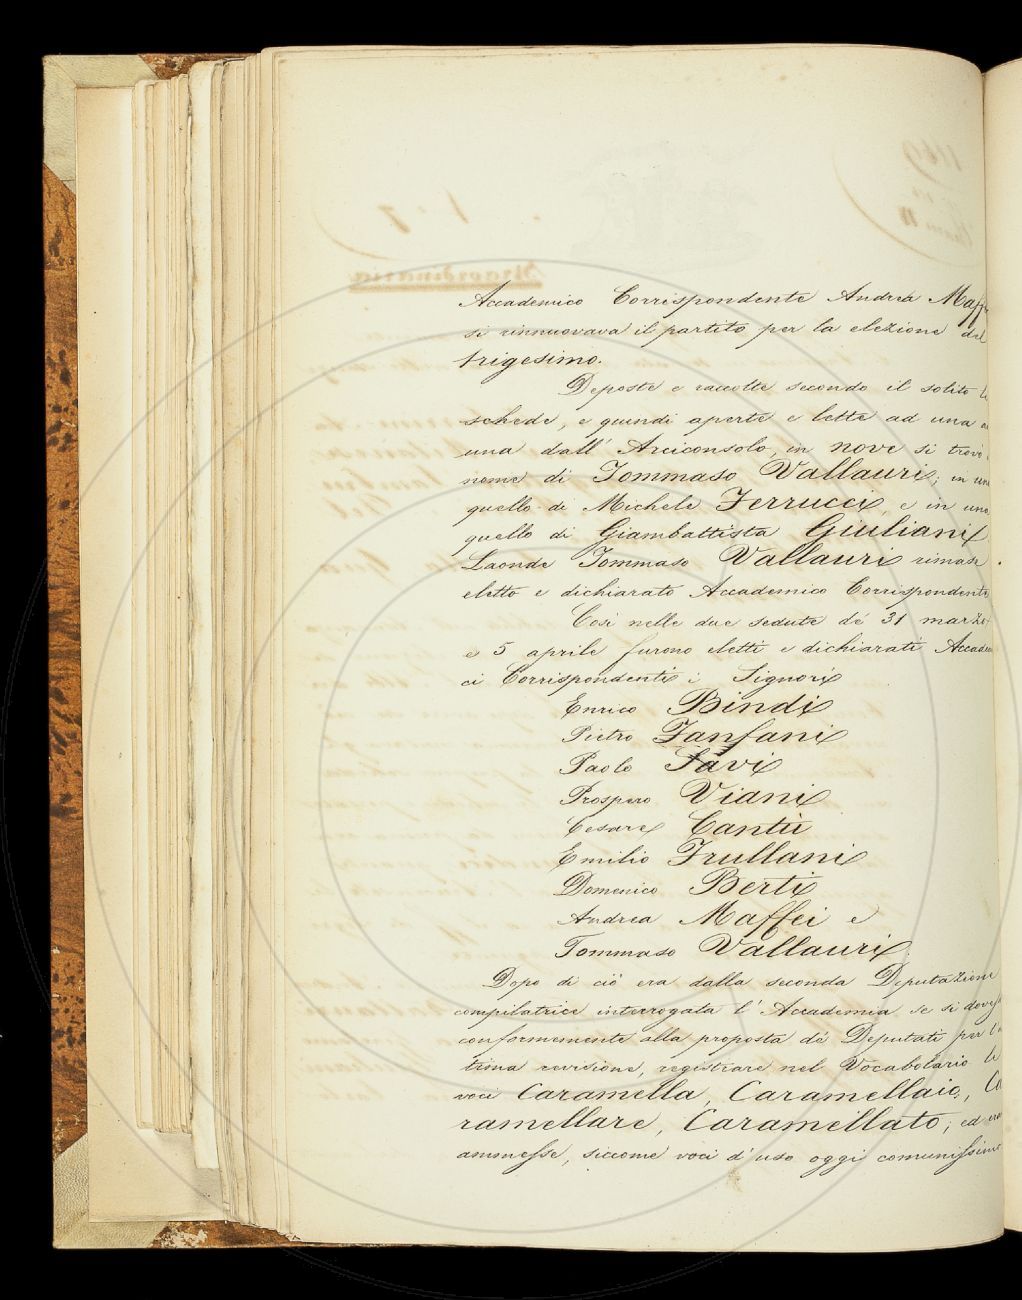 Accademico Corrispondente Andrea Maffei
si rinnuovava il partito per la elezione del
trigesimo.
Deposte e raccolte secondo il solito le
schede, e quindi aperte e lette ad una ad
una dall' Arciconsolo, in nove si trovò il
nome di Tommaso Vallauri; in uno
quello di Michele Ferrucci, e in uno
quello di Giambattista Giuliani
Laonde Tommaso Vallauri rimase
eletto e dichiarato Accademico Corrispondente
Così nelle due sedute de' 31 marzo
e 5 aprile furono eletti e dichiarati Accademi
ci Corrispondenti i Signori
Enrico Bindi
Pietro Fanfani
Paolo Savi
Prospero Viani
Cesare Cantù
Emilio Frullani
Domenico Berti
Andrea Maffei e
Tommaso Vallauri
Dopo di ciò era dalla seconda Deputazione
compilatrice interrogata l' Accademia, se si dovesse
conformemente alla proposta de' Deputati per l'ul
tima revisione, registrare nel Vocabolario le
voci Caramella, Caramellaio, Ca
ramellare, Caramellato; ed eran
ammesse, siccome voci d' uso oggi comunissimo
Straordinaria